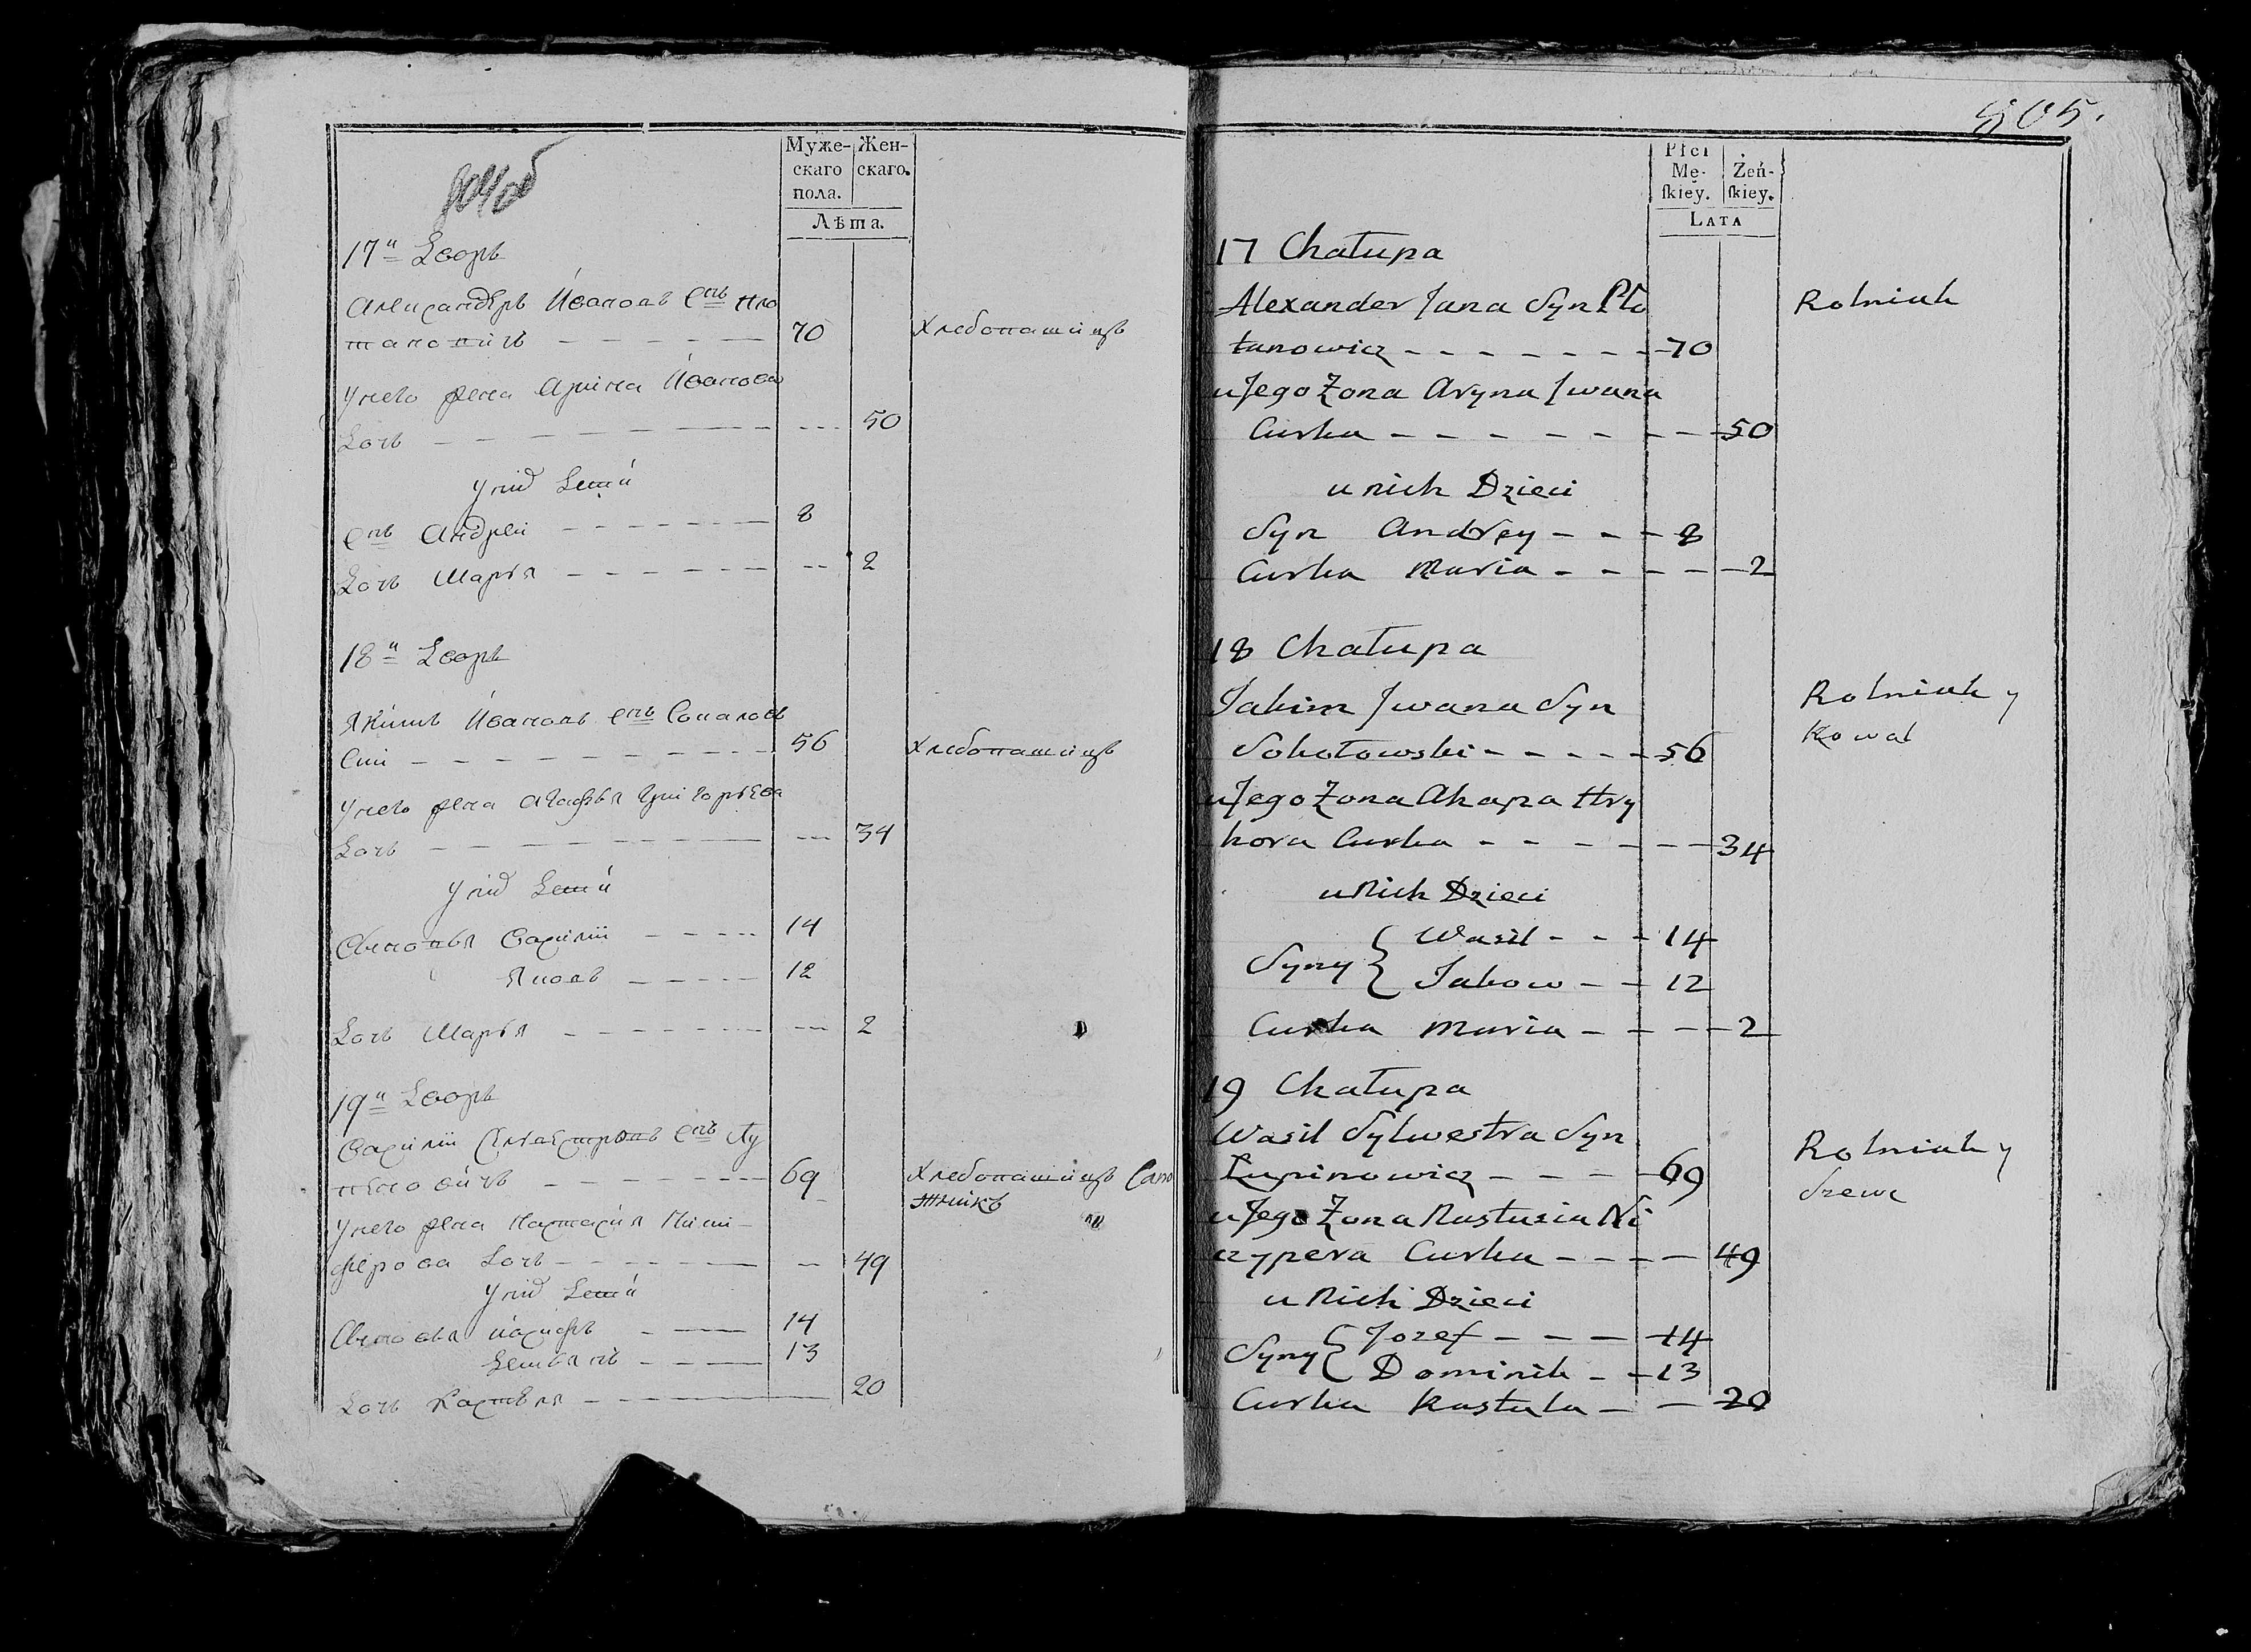 Муже-
скаго
пола.
Жен-
скаго.
Лѣта.
17й Дворъ
Александръ Ивановъ снъ Пло
тановичъ 70 Хлебопашецъ
У него жена Арина Иванова
Дочь 50
У них дети
Снъ Андрей 8
Дочь Марья 2
18й Дворъ
Якимъ Ивановъ снъ Соколов
скiй 56 Хлебопашецъ
У него жена Агафья Григорьева
Дочь 34
У них дети
Сыновья Василiй 14
Яковъ 12
Дочь Марья 2
19й Дворъ
Василiй Сильвестровъ снъ Лу
пеновичъ 69 Хлебопашецъ Сапо
жникъ
У него жена Настасия Ники-
ферова дочь 49
У них дети
Сыновья Иосифъ 14
Демьянъ 13
Дочь 20
805.
Płci
Mę-
skiey.
Żeń-
skiey.
LATA
17 Chałupa
Alexander Jana Syn Pło Rolniak
tanowicz 70
u Jego Żona Aryna Jwana
Curka 50
u nich Dzieci
Syn Andrey 8
Curka Maria 2
18 Chałupa
Jakim Jwana Syn Rolniak y
Sokołowski 56 Kowal
u Jego Żona Ahapa Hry
hora Curka 34
u Nich Dzieci
Syny { Wasil 14
Jakow 12
Curka Maria 2
19 Chałupa
Wasil Sylwestra Syn Rolniak y
Łupinowicz 69 Szewc
u Jego Żona Nastazia Ni
czypera Curka 49
u Nich Dzieci
Syny { Jozef 14
Dominik 13
Curka Kastula 20